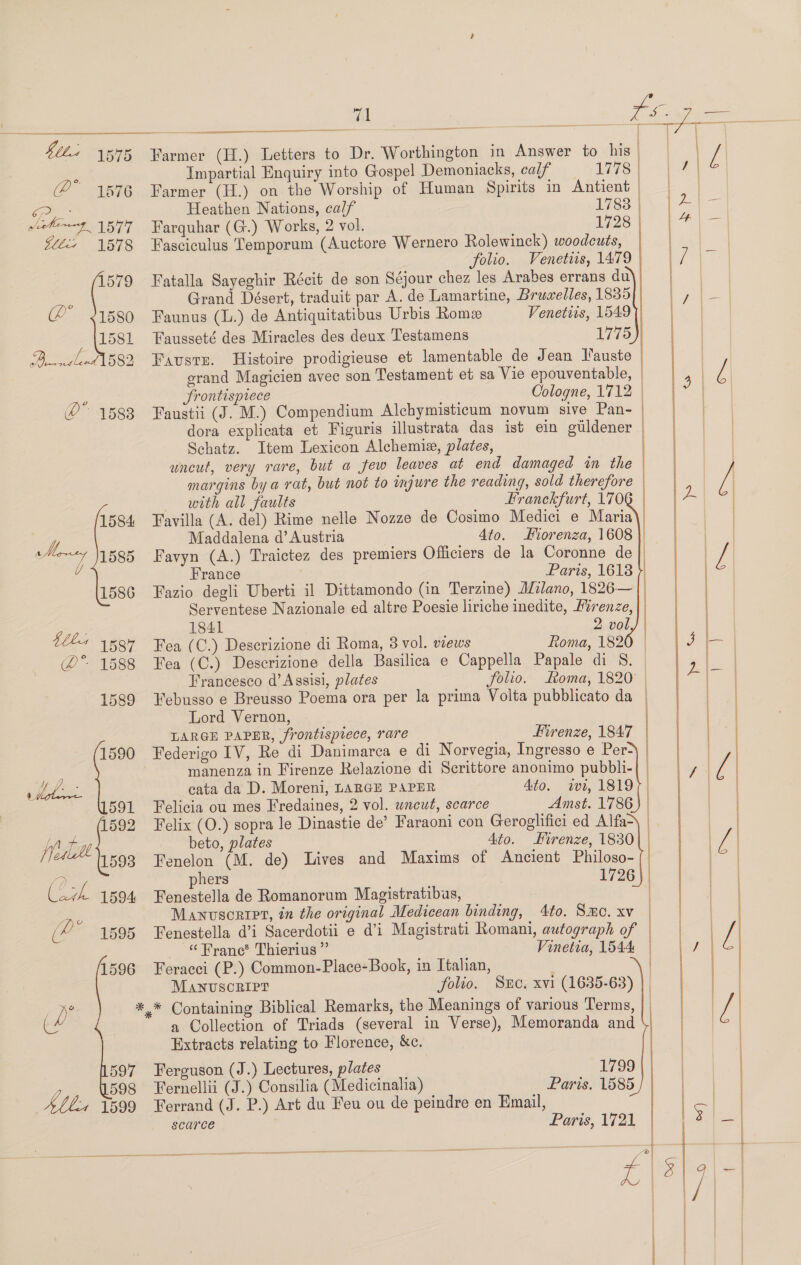 71
£ s. 7 —
1575 Farmer (H.) Letters to Dr. Worthington in Answer to his
Impartial Enquiry into Gospel Demoniacks, calf 1778
1576 Farmer (H.) on the Worship of Human Spirits in Antient
Heathen Nations, calf 1783
1577 Farquhar (G.) Works, 2 vol. 1728
1578 Fasciculus Temporum (Auctore Wernero Rolewinck) woodcuts,
folio. Venetiis, 1479
1579 Fatalla Sayeghir Récit de son Séjour chez les Arabes errans du
Grand Désert, traduit par A. de Lamartine, Bruxelles, 1835
1580 Faunus (L.) de Antiquitatibus Urbis Romæ Venetiis, 1549
1581 Fausseté des Miracles des deux Testamens 1775
1582 Fauste. Histoire prodigieuse et lamentable de Jean Fauste
grand Magicien avec son Testament et sa Vie epouventable,
frontispiece Cologne, 1712
1583 Faustii (J. M.) Compendium Alchymisticum novum sive Pan-
dora explicata et Figuris illustrata das ist ein güldener
Schatz. Item Lexicon Alchemiæ, plates,
uncut, very rare, but a few leaves at end damaged in the
margins by a rat, but not to injure the reading, sold therefore
with all faults Franckfurt, 1706
1584 Favilla (A. del) Rime nelle Nozze de Cosimo Medici e Maria
Maddalena d'Austria 4to. Fiorenza, 1608
Money 1585 Favyn (A.) Traictez des premiers Officiers de la Coronne de
France Paris, 1613
1586 Fazio degli Uberti il Dittamondo (in Terzine) Milano, 1826—
Serventese Nazionale ed altre Poesie liriche inedite, Firenze,
1841 2 vol.
1587 Fea (C.) Descrizione di Roma, 3 vol. views Roma, 1826
1588 Fea (C.) Descrizione della Basilica e Cappella Papale di S.
Francesco d'Assisi, plates folio. Roma, 1820
1589 Febusso e Breusso Poema ora per la prima Volta pubblicato da
Lord Vernon,
LARGE PAPER, frontispiece, rare Firenze, 1847
1590 Federigo IV, Re di Danimarca e di Norvegia, Ingresso e Per-
manenza in Firenze Relazione di Scrittore anonimo pubbli-
cata da D. Moreni, LARGE PAPER 4to. ivi, 1819
1591 Felicia ou mes Fredaines, 2 vol. uncut, scarce Amst. 1786
1592 Felix (O.) sopra le Dinastie de' Faraoni con Geroglifici ed Alfa-
beto, plates 4to. Firenze, 1830
1593 Fenelon (M. de) Lives and Maxims of Ancient Philoso-
phers 1726
Cash 1594 Fenestella de Romanorum Magistratibus,
MANUSCRIPT, in the original Medicean binding, 4to. Sæc. xv
1595 Fenestella d'i Sacerdotii e d'i Magistrati Romani, autograph of
"Franc⁸ Thierius" Vinetia, 1544
1596 Feracci (P.) Common-Place-Book, in Italian,
MANUSCRIPT folio. Sæc. xvi (1635-63)
*** Containing Biblical Remarks, the Meanings of various Terms,
a Collection of Triads (several in Verse), Memoranda and
Extracts relating to Florence, &c.
1597 Ferguson (J.) Lectures, plates 1799
1598 Fernellii (J.) Consilia (Medicinalia) Paris. 1585
1599 Ferrand (J. P.) Art du Feu ou de peindre en Email,
scarce Paris, 1721
£ 8 9 —